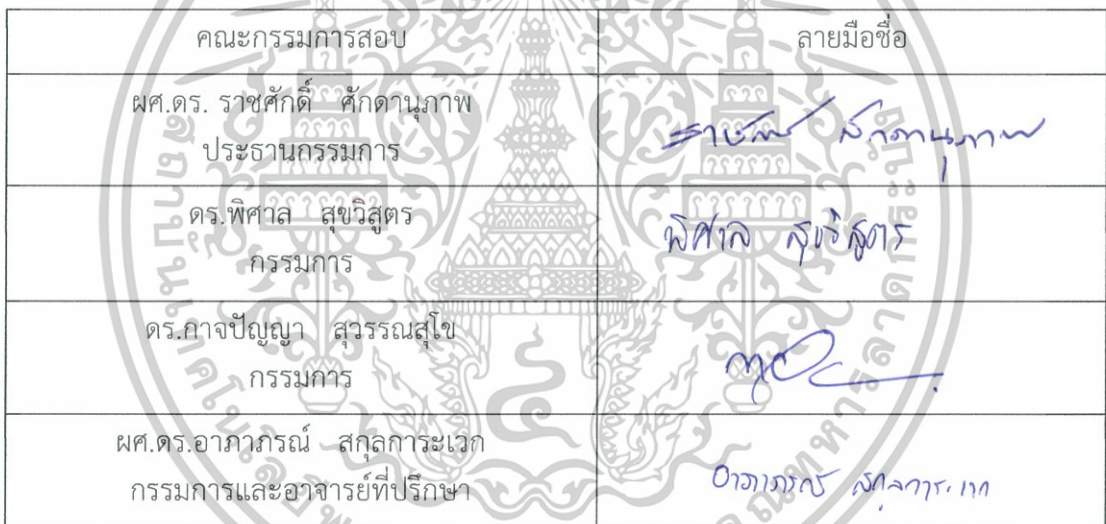 คณะกรรมการสอบ ลายมือชื่อ
ผศ.ดร. ราชศักดิ์ ศักดานุภาพ
ประธานกรรมการ
ศักดานุภาพ
ดร.พิศาล สุขวิสูตร
กรรมการ
พิศาล สุขวิสูตร
ดร.กาจปัญญา สุวรรณสุโข
กรรมการ
ผศ.ดร.อาภาภรณ์ สกุลการะเวก
กรรมการและอาจารย์ที่ปรึกษา
อาภาภรณ์ สกุลการะเวก